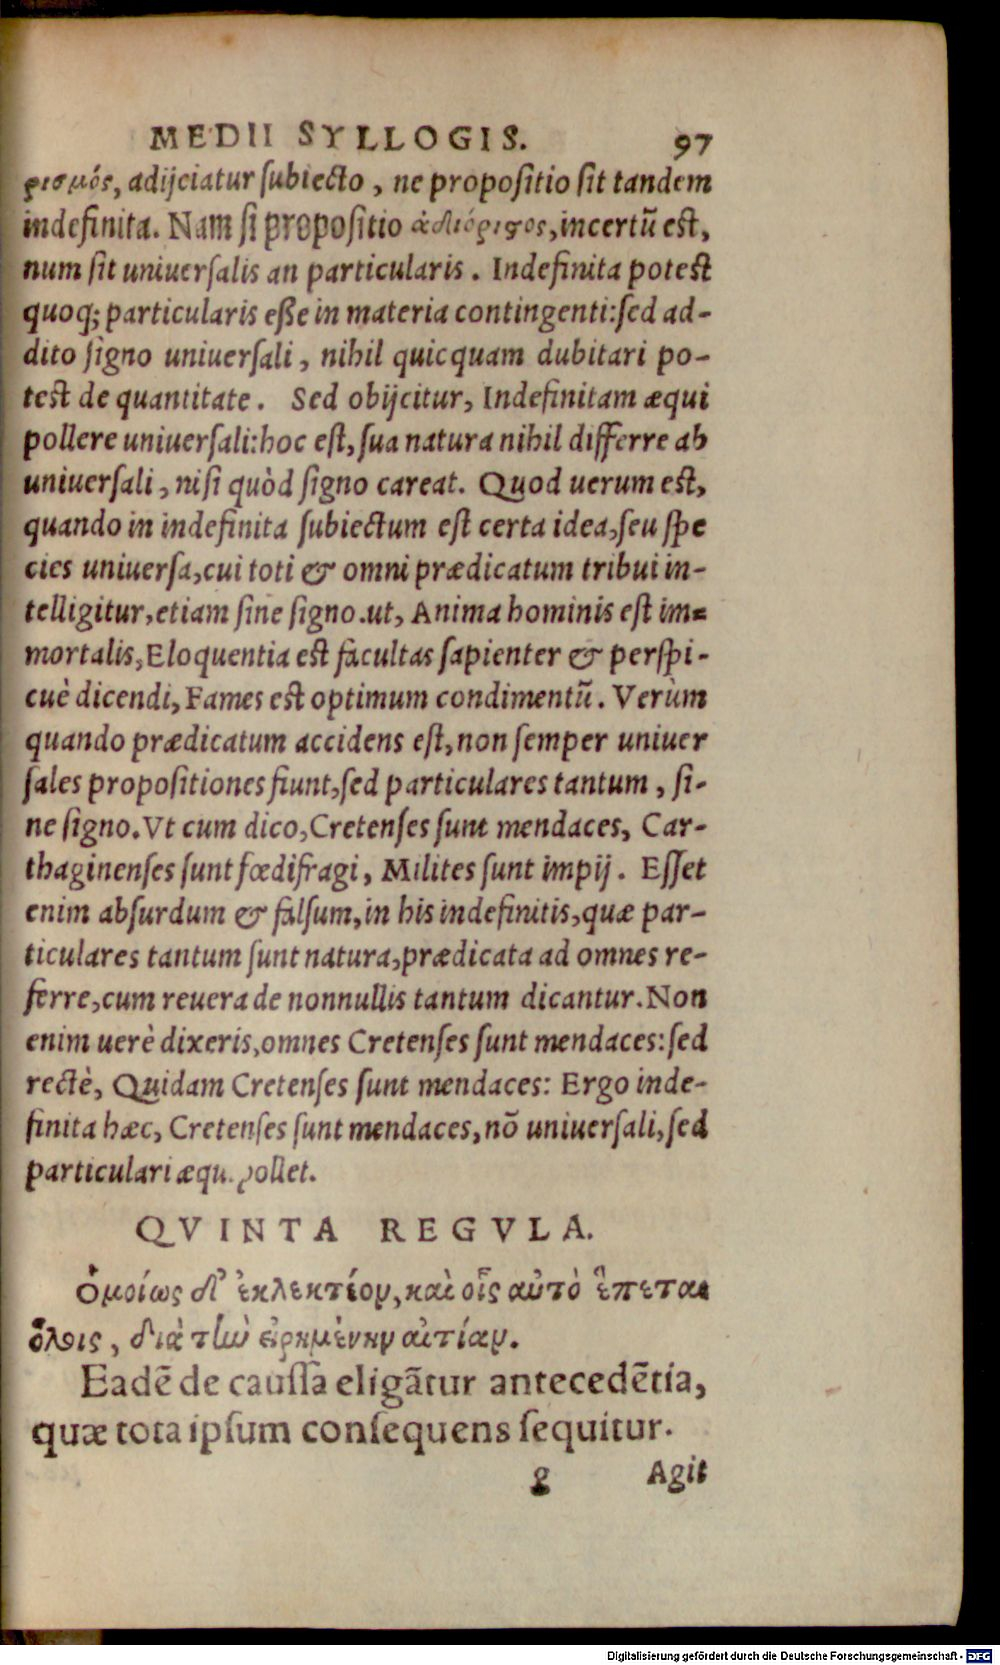 MEDII SYLLOGIS. 97
ρισμός, adijciatur subiecto, ne propositio sit tandem
indefinita. Nam si propositio ἀδιόριςος, incertũ est,
num sit uniuersalis an particularis. Indefinita potest
quoq; particularis eße in materia contingenti: sed ad-
dito signo uniuersali, nihil quicquam dubitari po-
test de quantitate. Sed obijcitur, Indefinitam æqui
pollere uniuersali: hoc est, sua natura nihil differre ab
uniuersali, nisi quòd signo careat. Quod uerum est,
quando in indefinita subiectum est certa idea, seu spe
cies uniuersa, cui toti & omni prædicatum tribui in-
telligitur, etiam sine signo. ut, Anima hominis est im-
mortalis, Eloquentia est facultas sapienter & perspi-
cuè dicendi, Fames est optimum condimentũ. Verùm
quando prædicatum accidens est, non semper uniuer
sales propositiones fiunt, sed particulares tantum, si-
ne signo. Vt cum dico, Cretenses sunt mendaces, Car-
thaginenses sunt fœdifragi, Milites sunt impij. Esset
enim absurdum & falsum, in his indefinitis, quæ par-
ticulares tantum sunt natura, prædicata ad omnes re-
ferre, cum reuera de nonnullis tantum dicantur. Non
enim uerè dixeris, omnes Cretenses sunt mendaces: sed
rectè, Quidam Cretenses sunt mendaces: Ergo inde-
finita hæc, Cretenses sunt mendaces, nõ uniuersali, sed
particulari æqu. pollet.
QVINTA REGVLA.
Ὁμοίως δ' ἐκλεκτέον, καὶ οἷς αὐτὸ ἕπεται
ὅλοις, διὰ τὼ εἰρημένην αἰτίαν.
Eadẽ de caussa eligãtur antecedẽtia,
quæ tota ipsum consequens sequitur.
g Agit
Digitalisierung gefördert durch die Deutsche Forschungsgemeinschaft - DFG